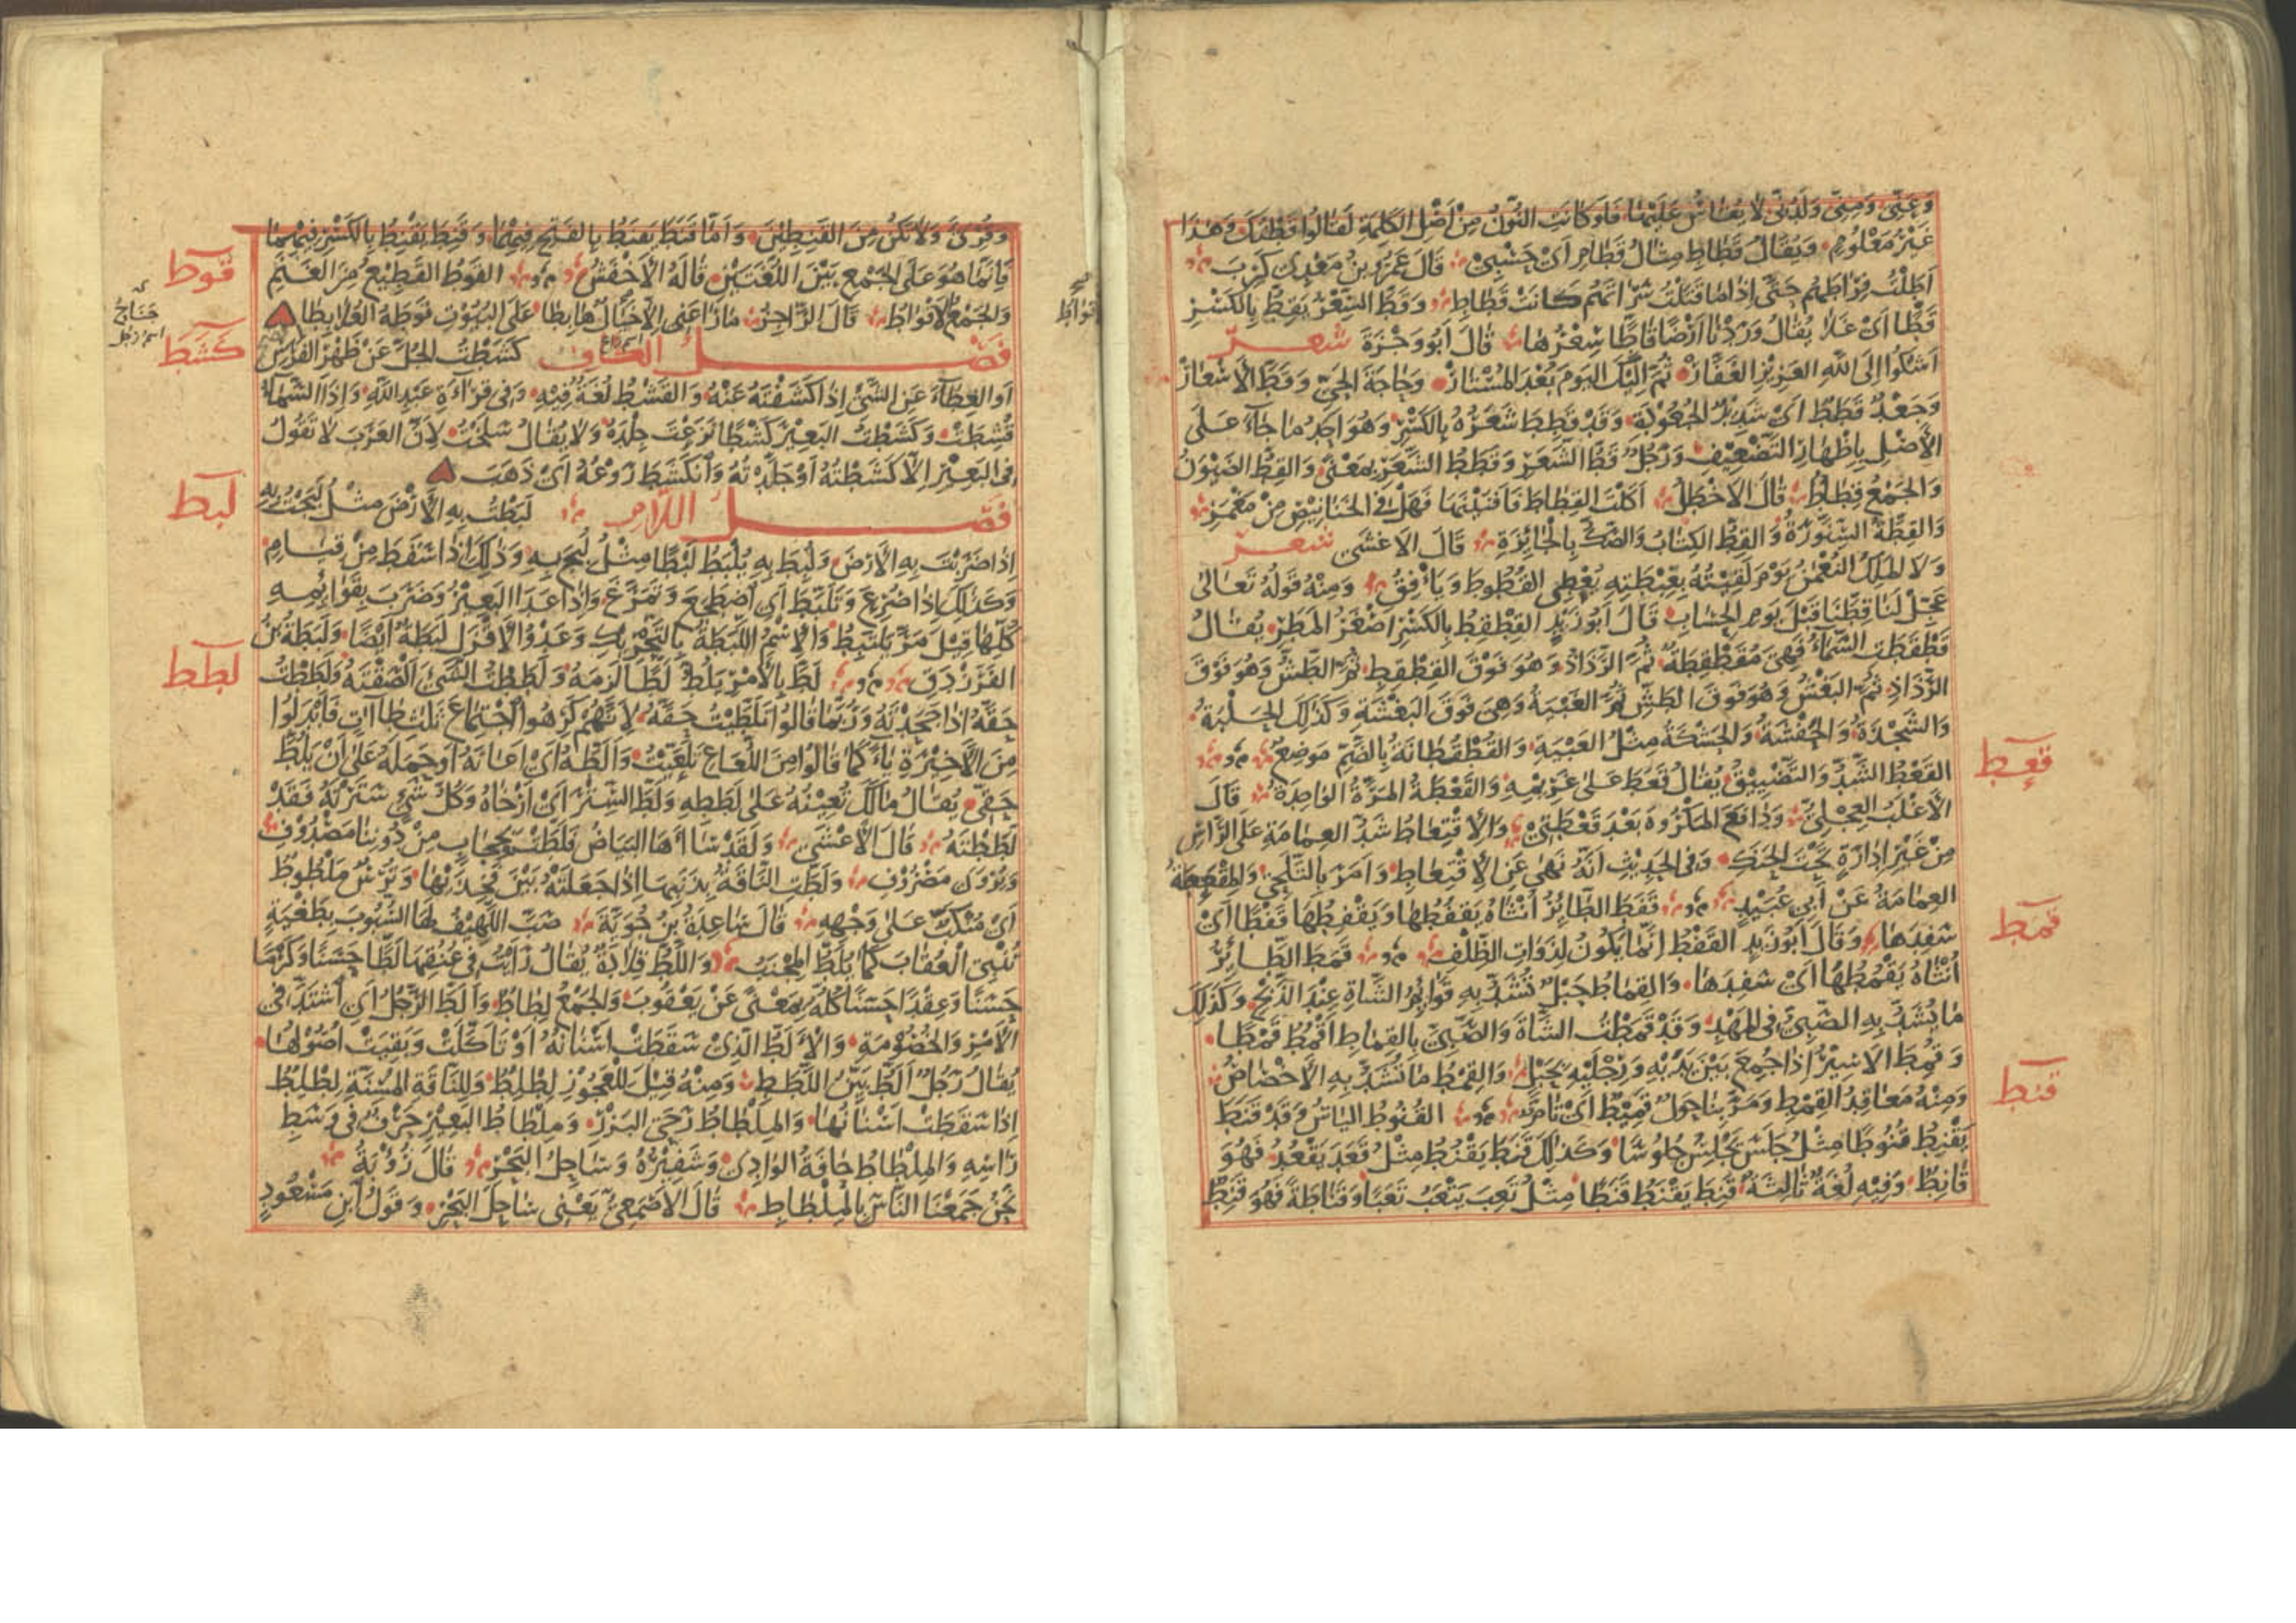 وَعَنِّى وَمِنِّى وَلَدُنِّى لَا يُقَاسُ عَلَيْهَا فَلَوْ كَانَتِ النُّوْنُ مِنْ أَصْلِ الكَلِمَةِ لَقَالُوا قَطْنُكَ وَهٰذَا
غَيْرُ مَعْلُوْمٍ وَيُقَالُ قَطَاطِ مِثَالُ قَطَامِ أَىْ حَسْبِىْ قَالَ عَمْرُو بْنُ مَعْدِى كَرِبَ
أَطَلْتُ فِرَاطَهُمْ حَتَّى إِذَا مَا قَتَلْتُ سَرَاتَهُمْ كَانَتْ قَطَاطِ وَقَطَّ السِّعْرُ يَقِطُّ بِالكَسْرِ
قَطًّا أَىْ غَلَا يُقَالُ وَرَدْنَا أَرْضًا قَاطًّا سِعْرُهَا قَالَ أَبُو وَجْزَةَ شعر
أَشْكُوا إِلَى اللّٰهِ العَزِيْزِ الغَفَّارْ ثُمَّ إِلَيْكَ اليَوْمَ بُعْدَ المُسْتَارْ وَحَاجَةَ الحَىِّ وَقَطَّ الأَسْعَارْ
وَجَعْدٌ قَطَطٌ أَىْ شَدِيْدُ الجُعُوْدَةِ وَقَدْ قَطِطَ شَعَرُهُ بِالكَسْرِ وَهُوَ أَحَدُ مَا جَاءَ عَلَى
الأَصْلِ بِإِظْهَارِ التَّضْعِيْفِ وَرَجُلٌ قَطُّ الشَّعَرِ وَقَطَطُ الشَّعَرِ بِمَعْنًى وَالقِطُّ الضَّيْوَنُ
وَالجَمْعُ قِطَاطٌ قَالَ الأَخْطَلُ أَكَلْتَ القِطَاطَ فَأَفْنَيْتَهَا فَهَلْ فِى الخَنَانِيْصِ مِنْ مَغْمَزِ
وَالقِطَّةُ السِّنَّوْرَةُ وَالقِطُّ الكِتَابُ وَالصَّكُّ بِالجَائِزَةِ قَالَ الأَعْشَى شعر
وَلَا المَلِكُ النُّعْمٰنُ يَوْمَ لَقِيْتُهُ بِغِبْطَتِهِ يُعْطِى القُطُوْطَ وَيَأْفِقُ وَمِنْهُ قَوْلُهُ تَعَالَى
عَجِّلْ لَنَا قِطَّنَا قَبْلَ يَوْمِ الحِسَابِ قَالَ أَبُو زَيْدٍ القِطْقِطُ بِالكَسْرِ أَصْغَرُ المَطَرِ يُقَالُ
قَطْقَطَتِ السَّمَاءُ فَهِىَ مُقَطْقِطَةٌ ثُمَّ الرَّذَاذُ وَهُوَ فَوْقَ القِطْقِطِ ثُمَّ الطَّشُّ وَهُوَ فَوْقَ
الرَّذَاذِ ثُمَّ البَغْشُ وَهُوَ فَوْقَ الطَّشِّ ثُمَّ الغَبْيَةُ وَهِىَ فَوْقَ البَغْشَةِ وَكَذٰلِكَ الحَلْبَةُ
وَالشَّجْذَةُ وَالحَفْشَةُ وَالحَشْكَةُ مِثْلُ الغَبْيَةِ وَالقُطْقُطَانَةُ بِالضَّمِّ مَوْضِعٌ
القَعْطُ الشَّدُّ وَالتَّضْيِيْقُ يُقَالُ قَعَطَ عَلَى غَرِيْمِهِ وَالقَعْطَةُ المَرَّةُ الوَاحِدَةُ قَالَ
قعط
الأَغْلَبُ العِجْلِىُّ وَدَافَعَ المَكْرُوْهَ بَعْدَ قَعْطَتِىْ وَالاقْتِعَاطُ شَدُّ العِمَامَةِ عَلَى الرَّأْسِ
مِنْ غَيْرِ إِدَارَةٍ تَحْتَ الحَنَكِ وَفِى الحَدِيْثِ أَنَّهُ نَهَى عَنِ الاقْتِعَاطِ وَأَمَرَ بِالتَّلَحِّى وَالمِقْعَطَةُ
العِمَامَةُ عَنْ أَبِى عُبَيْدٍ قَفَطَ الطَّائِرُ أُنْثَاهُ يَقْفُطُهَا وَيَقْفِطُهَا قَفْطًا أَىْ
سَفِدَهَا وَقَالَ أَبُو زَيْدٍ القَفْطُ إِنَّمَا يَكُوْنُ لِذَوَاتِ الظِّلْفِ قَمَطَ الطَّائِرُ
قمط
أُنْثَاهُ يَقْمُطُهَا أَىْ سَفِدَهَا وَالقِمَاطُ حَبْلٌ تُشَدُّ بِهِ قَوَائِمُ الشَّاةِ عِنْدَ الذَّبْحِ وَكَذٰلِكَ
مَا يُشَدُّ بِهِ الصَّبِىُّ فِى المَهْدِ وَقَدْ قَمَطْتُ الشَّاةَ وَالصَّبِىَّ بِالقِمَاطِ أَقْمُطُ قَمْطًا
وَقُمِطَ الأَسِيْرُ إِذَا جُمِعَ بَيْنَ يَدَيْهِ وَرِجْلَيْهِ بِحَبْلٍ وَالقِمْطُ مَا تُشَدُّ بِهِ الأَخْصَاصُ
وَمِنْهُ مَعَاقِدُ القِمْطِ وَمَرَّ بِنَا حَوْلٌ قَمِيْطٌ أَىْ تَامٌّ القُنُوْطُ اليَأْسُ وَقَدْ قَنَطَ
قنط
يَقْنِطُ قُنُوْطًا مِثْلُ جَلَسَ يَجْلِسُ جُلُوْسًا وَكَذٰلِكَ قَنَطَ يَقْنُطُ مِثْلُ قَعَدَ يَقْعُدُ فَهُوَ
قَانِطٌ وَفِيْهِ لُغَةٌ ثَالِثَةٌ قَنِطَ يَقْنَطُ قَنَطًا مِثْلُ تَعِبَ يَتْعَبُ تَعَبًا وَقَنَاطَةً فَهُوَ قَنِطٌ
وَقُرِئَ وَلَا تَكُنْ مِنَ القَنِطِيْنَ وَأَمَّا قَنَطَ يَقْنَطُ بِالفَتْحِ فِيْهِمَا وَقَنِطَ يَقْنِطُ بِالكَسْرِ فِيْهِمَا
فَإِنَّمَا هُوَ عَلَى الجَمْعِ بَيْنَ اللُّغَتَيْنِ قَالَهُ الأَخْفَشُ القَوْطُ القَطِيْعُ مِنَ الغَنَمِ
قوط
وَالجَمْعُ الأَقْوَاطُ قَالَ الرَّاجِزُ مَا رَاعَنِى إِلَّا خَيَالٌ هَابِطَا عَلَى البُيُوْتِ قَوْطَهُ العُلَابِطَا
جناح
اسم رجل
أقواط
فصل الكاف كَشَطْتُ الجُلَّ عَنْ ظَهْرِ الفَرَسِ
كشط
أَوِ الغِطَاءَ عَنِ الشَّىْءِ إِذَا كَشَفْتَهُ عَنْهُ وَالقَشْطُ لُغَةٌ فِيْهِ وَفِى قِرَاءَةِ عَبْدِ اللّٰهِ وَإِذَا السَّمَاءُ
قُشِطَتْ وَكَشَطْتُ البَعِيْرَ كَشْطًا نَزَعْتُ جِلْدَهُ وَلَا يُقَالُ سَلَخْتُ لِأَنَّ العَرَبَ لَا تَقُوْلُ
فِى البَعِيْرِ إِلَّا كَشَطْتُهُ أَوْ جَلَّدْتُهُ وَانْكَشَطَ رَوْعُهُ أَىْ ذَهَبَ
فصل اللام لَبَطْتُ بِهِ الأَرْضَ مِثْلُ لَبَجْتُ بِهِ
لبط
إِذَا ضَرَبْتَ بِهِ الأَرْضَ وَلُبِطَ بِهِ يُلْبَطُ لَبْطًا مِثْلُ لُبِجَ بِهِ وَذٰلِكَ إِذَا سَقَطَ مِنْ قِيَامٍ
وَكَذٰلِكَ إِذَا صُرِعَ وَتَلَبَّطَ أَىِ اضْطَجَعَ وَتَمَرَّغَ وَإِذَا عَدَا البَعِيْرُ وَضَرَبَ بِقَوَائِمِهِ
كُلِّهَا قِيْلَ مَرَّ يَلْتَبِطُ وَالاسْمُ اللَّبَطَةُ بِالتَّحْرِيْكِ وَعَدْوُ الأَقْزَلِ لَبَطَةٌ أَيْضًا وَلَبَطَةُ بْنُ
الفَرَزْدَقِ لَطَّ بِالأَمْرِ يَلُطُّ لَطًّا لَزِمَهُ وَلَطَطْتُ الشَّىْءَ أَلْصَقْتُهُ وَلَطَطْتُ
لطط
حَقَّهُ إِذَا جَحَدْتَهُ وَرُبَّمَا قَالُوا تَلَطَّيْتُ حَقَّهُ لِأَنَّهُمْ كَرِهُوا اجْتِمَاعَ ثَلٰثِ طَاآتٍ فَأَبْدَلُوا
مِنَ الأَخِيْرَةِ يَاءً كَمَا قَالُوا مِنَ اللُّعَاعِ تَلَعَّيْتُ وَأَلَطَّهُ أَىْ أَعَانَهُ أَوْ حَمَلَهُ عَلَى أَنْ يَلُطَّ
حَقِّى يُقَالُ مَا لَكَ تُعِيْنُهُ عَلَى لَطَطِهِ وَلَطَّ السِّتْرَ أَىْ أَرْخَاهُ وَكُلُّ شَىْءٍ سَتَرْتَهُ فَقَدْ
لَطَطْتَهُ قَالَ الأَعْشَى وَلَقَدْ سَاءَهَا البَيَاضُ فَلَطَّتْ بِحِجَابٍ مِنْ دُوْنِنَا مَصْدُوْفِ
وَيُرْوَى مَصْرُوْفِ وَلَطَّتِ النَّاقَةُ بِذَنَبِهَا إِذَا جَعَلَتْهُ بَيْنَ فَخِذَيْهَا وَتُرْسٌ مَلْطُوْطٌ
أَىْ مُنْكَبٌّ عَلَى وَجْهِهِ قَالَ سَاعِدَةُ بْنُ جُؤَيَّةَ صَبَّ اللَّهِيْفُ لَهَا السُّبُوْبَ بِطَغْيَةٍ
تُنْبِى العُقَابَ كَمَا يُلَطُّ المِجْنَبُ وَاللَّطُّ قِلَادَةٌ يُقَالُ رَأَيْتُ فِى عُنُقِهَا لَطًّا حَسَنًا وَكَرْمًا
حَسَنًا وَعِقْدًا حَسَنًا كُلُّهُ بِمَعْنًى عَنْ يَعْقُوْبَ وَالجَمْعُ لِطَاطٌ وَأَلَطَّ الرَّجُلُ أَىِ اشْتَدَّ فِى
الأَمْرِ وَالخُصُوْمَةِ وَالأَلَطُّ الَّذِىْ سَقَطَتْ أَسْنَانُهُ أَوْ تَأَكَّلَتْ وَبَقِيَتْ أُصُوْلُهَا
يُقَالُ رَجُلٌ أَلَطُّ بَيِّنُ اللَّطَطِ وَمِنْهُ قِيْلَ لِلْعَجُوْزِ لِطْلِطٌ وَلِلنَّاقَةِ المُسِنَّةِ لِطْلِطٌ
إِذَا سَقَطَتْ أَسْنَانُهَا وَالمِلْطَاطُ رَحَى البَزْرِ وَمِلْطَاطُ البَعِيْرِ حَرْفٌ فِى وَسَطِ
رَأْسِهِ وَالمِلْطَاطُ حَافَةُ الوَادِىْ وَشَفِيْرُهُ وَسَاحِلُ البَحْرِ قَالَ رُؤْبَةُ
نَحْنُ جَمَعْنَا النَّاسَ بِالمِلْطَاطِ قَالَ الأَصْمَعِىُّ يَعْنِى سَاحِلَ البَحْرِ وَقَوْلُ ابْنِ مَسْعُوْدٍ